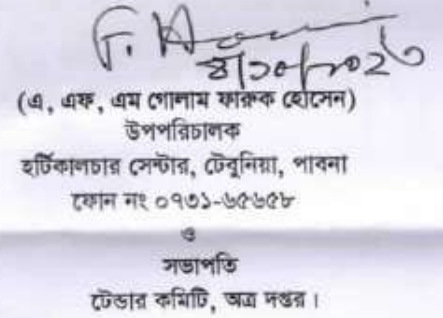 ৪/১০/২০২৩
(এ, এফ, এম গোলাম ফারুক হোসেন)
উপপরিচালক
হর্টিকালচার সেন্টার, টেবুনিয়া, পাবনা
ফোন নং ০৭৩১-৬৫৬৫৮
ও
সভাপতি
টেন্ডার কমিটি, অত্র দপ্তর।